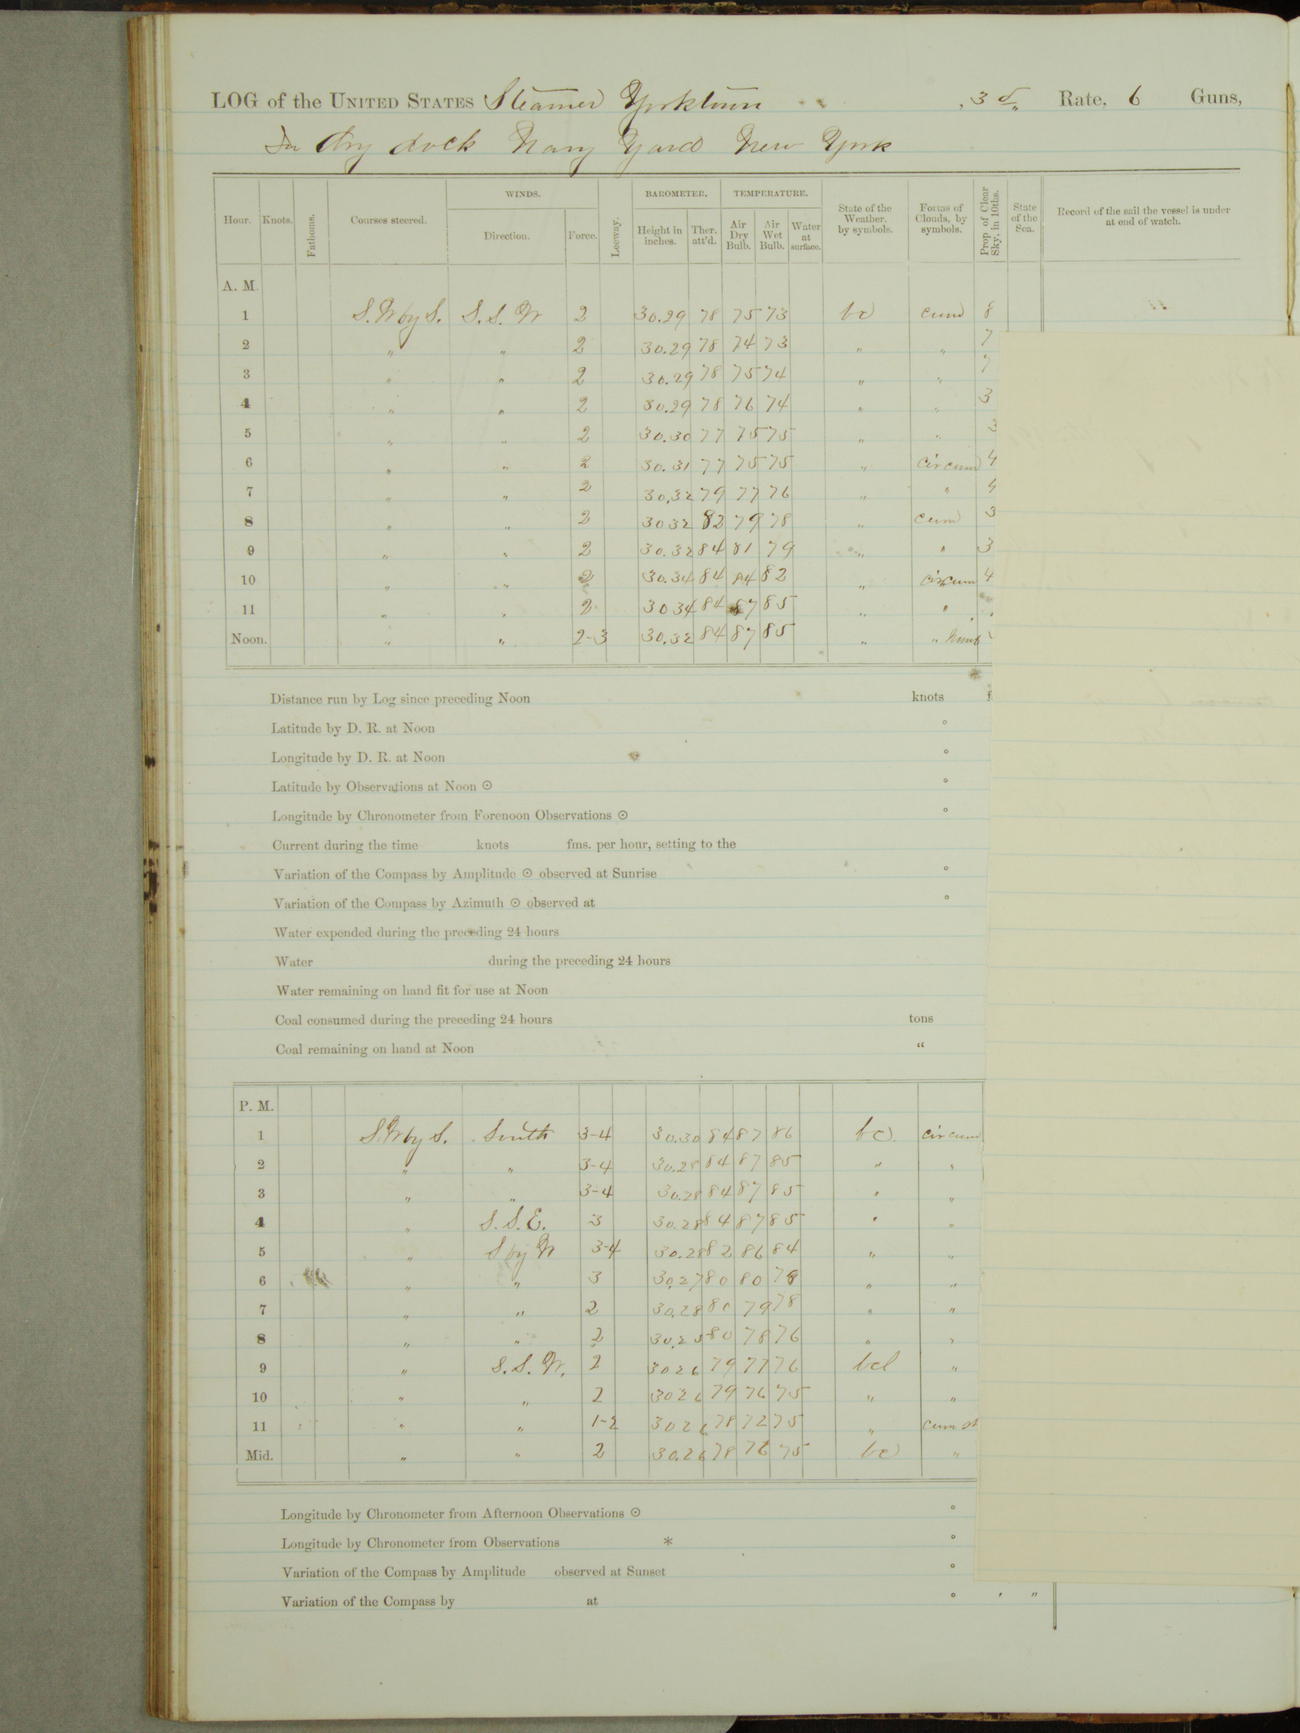 LOG of the UNITED STATES Steamer Yorktown , 3d Rate, 6 Guns,
In Dry dock Navy Yard New York
Hour. Knots. Fathoms. Courses steered. WINDS. Direction. Force. Leeway. BAROMETER. Height in inches. Ther. att'd. TEMPERATURE. Air Dry Bulb. Air Wet Bulb. Water at surface. State of the Weather. by symbols. Forms of Clouds, by symbols. Prop of Clear Sky, in 10ths. State of the Sea. Record of the sail the vessel is under at end of watch.
A. M.
1 S.W by S. S. S. W 2 30.29 78 75 73 bc cum 8
2 " " 2 30.29 78 74 73 " " 7
3 " " 2 30.29 78 75 74 " " 7
4 " " 2 30.29 78 76 74 " " 3
5 " " 2 30.30 77 75 75 " " 3
6 " " 2 30.31 77 75 75 " cir cum 4
7 " " 2 30.32 79 77 76 " " 4
8 " " 2 30 32 82 79 78 " cum 3
9 " " 2 30.32 84 81 79 " " 3
10 " " 2 30.34 84 84 82 " cir cum 4
11 " " 2 30 34 84 87 85 " "
Noon. " " 2-3 30.32 84 87 85 " "
Distance run by Log since preceding Noon knots f
Latitude by D. R. at Noon °
Longitude by D. R. at Noon °
Latitude by Observations at Noon ⊙ °
Longitude by Chronometer from Forenoon Observations ⊙ °
Current during the time knots fms. per hour, setting to the
Variation of the Compass by Amplitude ⊙ observed at Sunrise °
Variation of the Compass by Azimuth ⊙ observed at °
Water expended during the preceding 24 hours
Water during the preceding 24 hours
Water remaining on hand fit for use at Noon
Coal consumed during the preceding 24 hours tons
Coal remaining on hand at Noon "
P. M.
1 S.W by S. South 3-4 30.30 84 87 86 bc. cir cum
2 " " 3-4 30.28 84 87 85 " "
3 " " 3-4 30.28 84 87 85 " "
4 " S. S. E. 3 30.28 84 87 85 " "
5 " S by W 3-4 30.28 82 86 84 " "
6 " " 3 30.27 80 80 78 " "
7 " " 2 30.28 80 79 78 " "
8 " " 2 30.25 80 78 76 " "
9 " S. S. W. 2 30 26 79 77 76 bcl "
10 " " 2 30 26 79 76 75 " "
11 " " 1-2 30 26 78 72 75 " cum st
Mid. " " 2 30.26 78 76 75 bc "
Longitude by Chronometer from Afternoon Observations ⊙ °
Longitude by Chronometer from Observations * °
Variation of the Compass by Amplitude observed at Sunset °
Variation of the Compass by at ° ' "